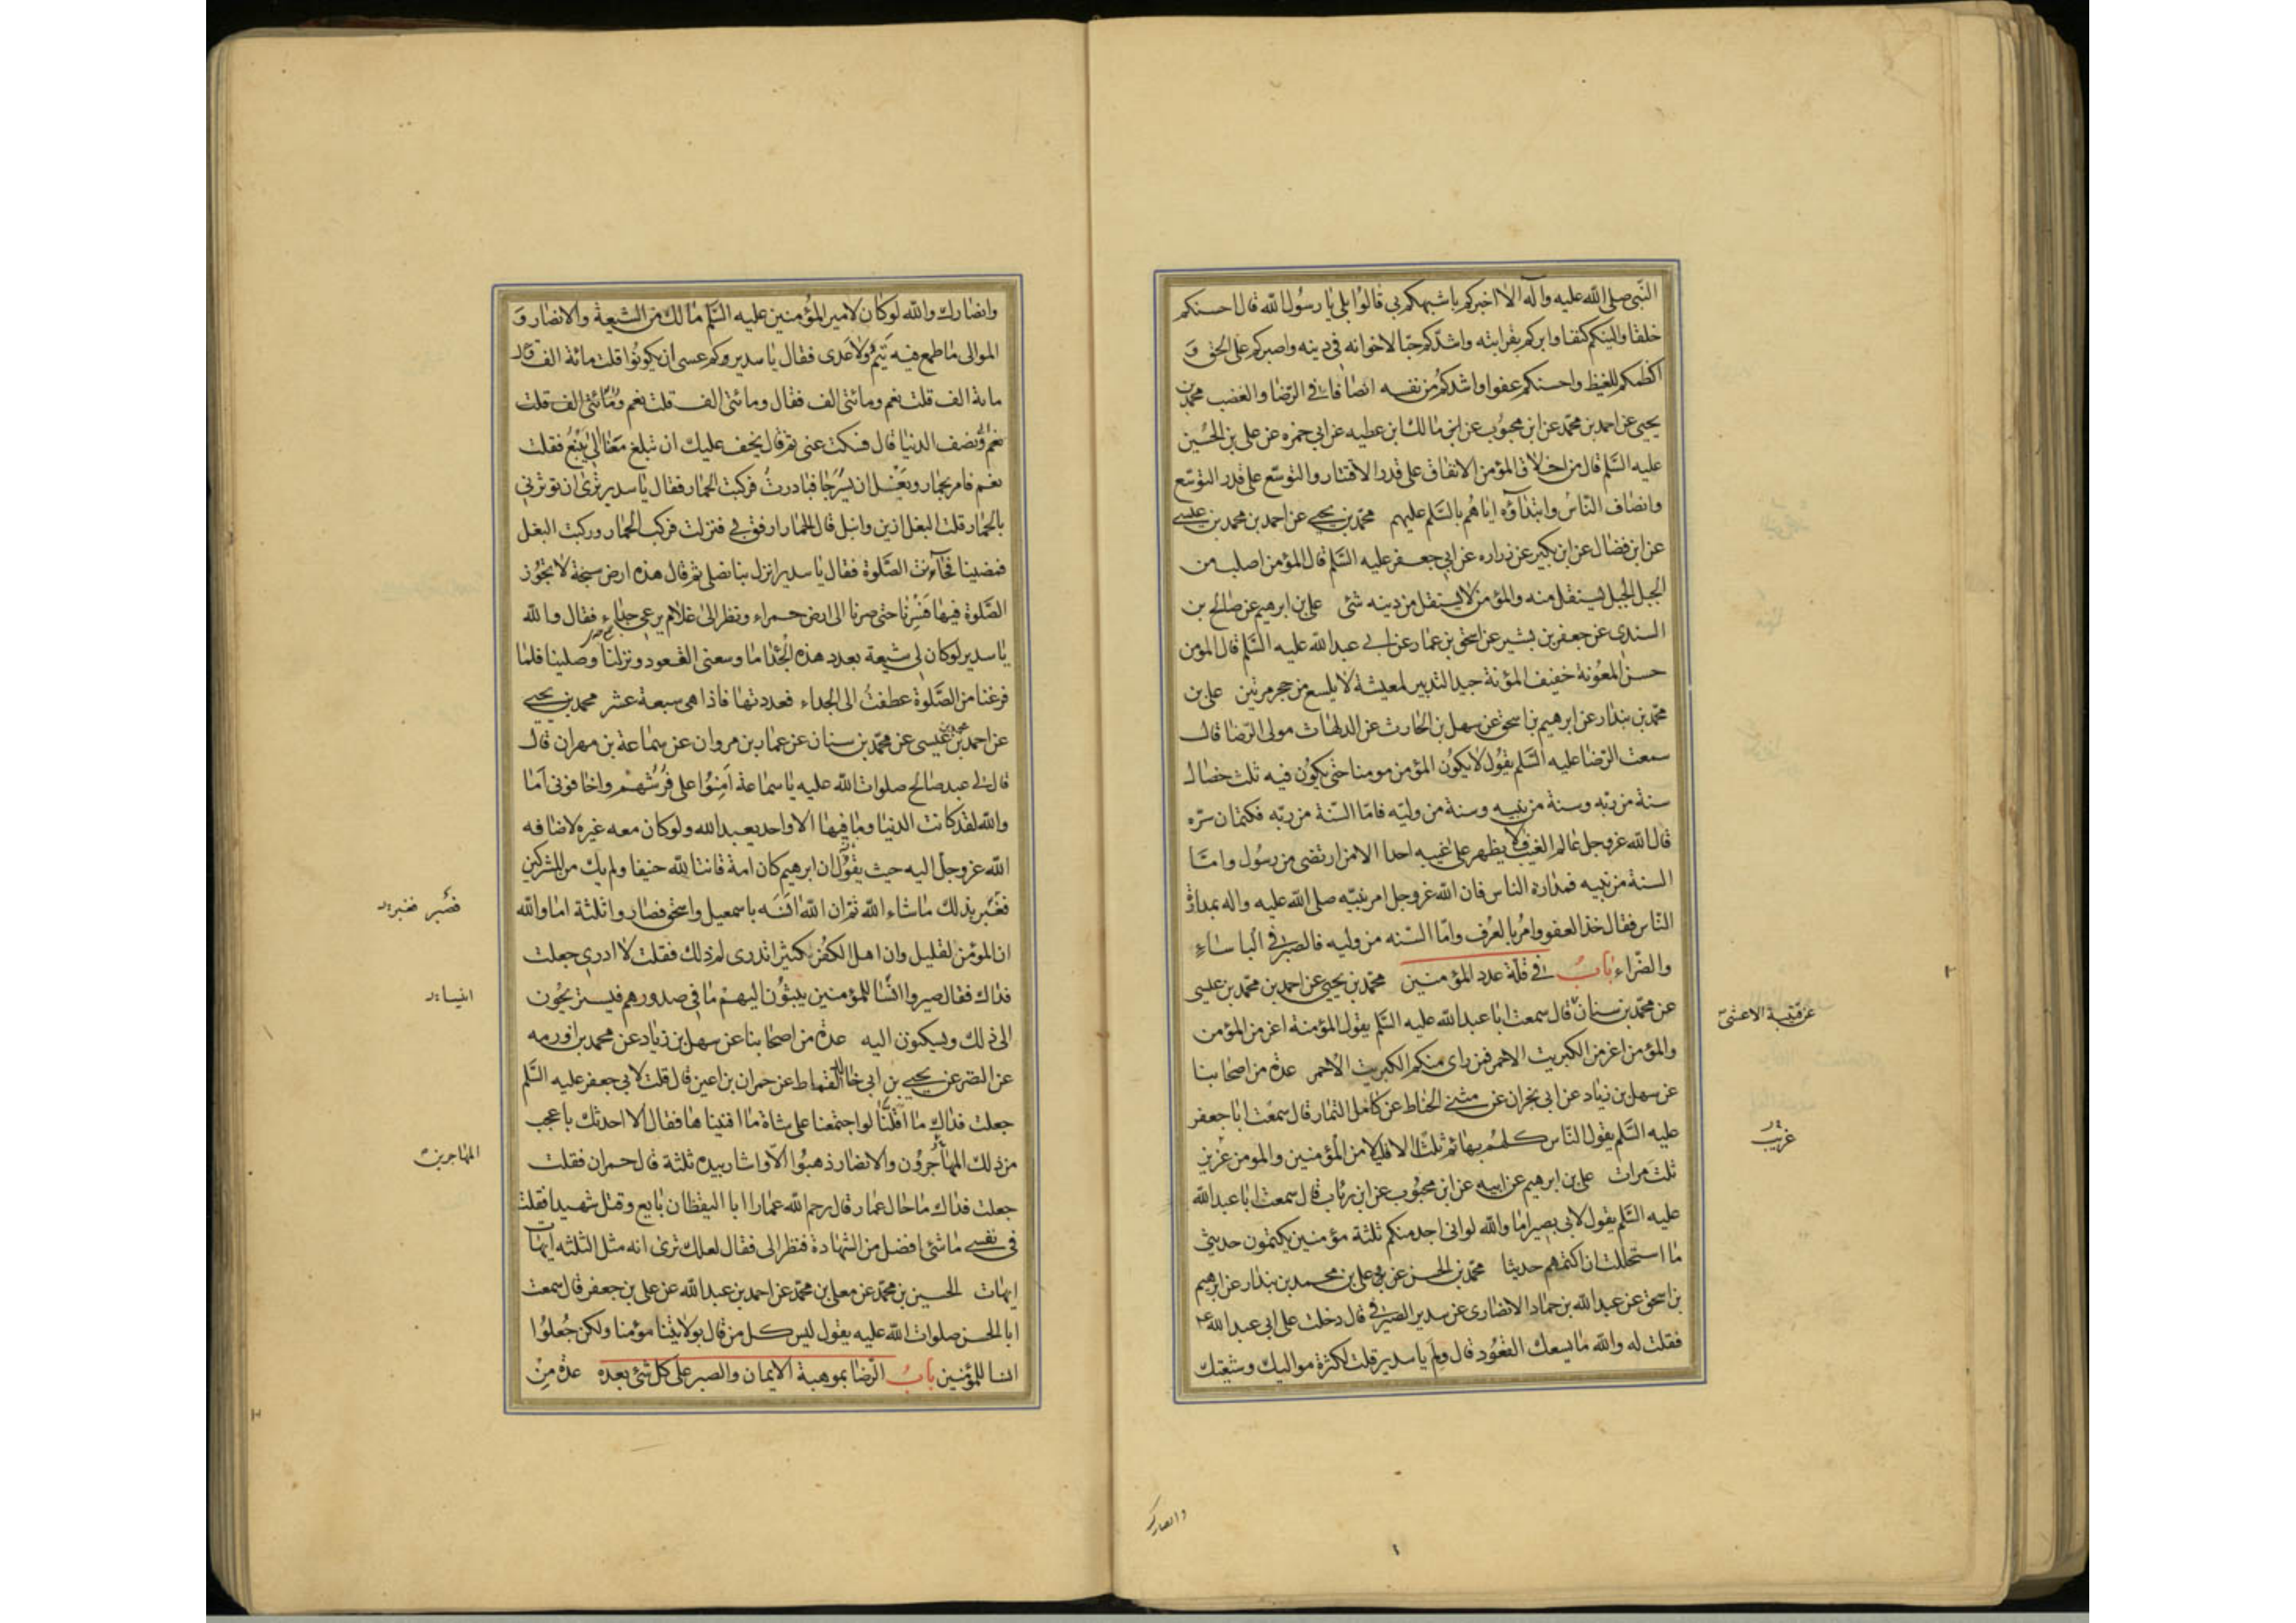 النبى صلى الله عليه واله الا اخبركم باشبهكم بى قالوا بلى يا رسول الله قال احسنكم
خلقا والينكم كنفا وابركم بقرابته واشدكم حبا لاخوانه فى دينه واصبركم على الحق و
اكظمكم للغيظ واحسنكم عفوا واشدكم من نفسه انصافا فى الرضا والغضب محمد بن
يحيى عن احمد بن محمد عن ابن محبوب عن ابن مالك ابن عطيه عن ابى حمزه عن على بن الحسين
عليه السلم قال من اخلاق المؤمن الانفاق على قدر الاقتار والتوسع على قدر التوسع
وانصاف الناس وابتداؤه اياهم بالسلم عليهم محمد بن يحيى عن احمد بن محمد بن عيسى
عن ابن فضال عن ابن بكير عن زراره عن ابى جعفر عليه السلم قال المؤمن اصلب من
الجبل الجبل يستقل منه والمؤمن لا يستقل من دينه شئ على بن ابرهيم عن صالح بن
السندى عن جعفر بن بشير عن اسحق بن عمار عن ابى عبد الله عليه السلم قال المؤمن
حسن المعونة خفيف المؤنة جيد التدبير لمعيشة لا يلسع من حجر مرتين على بن
محمد بن بندار عن ابرهيم بن اسحق عن سهل بن الحارث عن الدلهاث مولى الرضا قال
سمعت الرضا عليه السلم يقول لا يكون المؤمن مومنا حتى يكون فيه ثلث خصال
سنة من ربه وسنة من نبيه وسنة من وليه فاما السنة من ربه فكتمان سره
قال الله عز وجل عالم الغيب فلا يظهر على غيبه احدا الا من ارتضى من رسول واما
السنة من نبيه فمداراة الناس فان الله عز وجل امر نبيه صلى الله عليه واله بمداراة
الناس فقال خذ العفو وامر بالعرف واما السنه من وليه فالصبر فى الباساء
والضراء باب فى قلة عدد المؤمنين محمد بن يحيى عن احمد بن محمد بن عيسى
عن محمد بن سنان قال سمعت ابا عبد الله عليه السلم يقول المؤمنة اعز من المؤمن
عن قتيبة الاعشى
والمؤمن اعز من الكبريت الاحمر فمن راى منكم الكبريت الاحمر عدة من اصحابنا
عن سهل بن زياد عن ابى نجران عن مثنى الحناط عن كامل التمار قال سمعت ابا جعفر
عليه السلم يقول الناس كلهم بهائم ثلثا الا قليلا من المؤمنين والمومن عزيز
غريب
ثلث مرات على بن ابرهيم عن ابيه عن ابن محبوب عن ابن رئاب قال سمعت ابا عبد الله
عليه السلم يقول لابى بصير اما والله لو انى اجد منكم ثلثة مؤمنين يكتمون حديثى
ما استحللت ان اكتمهم حديثا محمد بن الحسن عن على بن محمد بن بندار عن ابرهيم
بن اسحق عن عبد الله بن حماد الانصارى عن سدير الصيرفى قال دخلت على ابى عبد الله
فقلت له والله ما يسعك القعود قال ولم يا سدير قلت لكثرة مواليك وشيعتك
وانصارك
وانصارك والله لو كان لامير المؤمنين عليه السلم مالك من الشيعة والانصار و
الموالى ما طمع فيه تيم ولا عدى فقال يا سدير وكم عسى ان يكونوا قلت مائة الف قال
مائة الف قلت نعم ومائتى الف فقال ومائتى الف قلت نعم ومائتى الف قلت
نعم ونصف الدنيا قال فسكت عنى ثم قال يخف عليك ان تبلغ معنا الى ينبع فقلت
نعم فامر بحمار وبغل ان يسرجا فبادرت فركبت الحمار فقال يا سدير ترى ان توثرنى
بالحمار قلت البغل ازين وانبل قال الحمار ارفق بى فنزلت فركب الحمار وركبت البغل
فمضينا فحانت الصلوة فقال يا سدير انزل بنا نصلى ثم قال هذه ارض سبخة لا تجوز
الصلوة فيها فسرنا حتى صرنا الى ارض حمراء ونظر الى غلام يرعى جداء فقال والله
يا سدير لو كان لى شيعة بعدد هذه الجداء ما وسعنى القعود ونزلنا وصلينا فلما
فرغنا من الصلوة عطفت الى الجداء فعددتها فاذا هى سبعة عشر محمد بن يحيى
عن احمد بن محمد بن عيسى عن محمد بن سنان عن عمار بن مروان عن سماعة بن مهران قال
قال لى عبد صالح صلوات الله عليه يا سماعة امنوا على فرشهم واخافونى اما
والله لقد كانت الدنيا وما فيها الا واحد يعبد الله ولو كان معه غيره لاضافه
الله عز وجل اليه حيث يقول ان ابرهيم كان امة قانتا لله حنيفا ولم يك من المشركين
فغبر بذلك ما شاء الله ثم ان الله انسه باسمعيل واسحق فصاروا ثلثة اما والله
فصبر فغبر
ان المؤمن لقليل وان اهل الكفر كثير اتدرى لم ذلك فقلت لا ادرى جعلت
فداك فقال صيروا انسا للمؤمنين يبثون اليهم ما فى صدورهم فيستريحون
الى ذلك ويسكنون اليه عدة من اصحابنا عن سهل بن زياد عن محمد بن اورمه
عن النضر عن يحيى بن ابى خالد القماط عن حمران بن اعين قال قلت لابى جعفر عليه السلم
جعلت فداك ما اقلنا لو اجتمعنا على شاة ما افنيناها فقال الا احدثك باعجب
من ذلك المهاجرون والانصار ذهبوا الا واشار بيده ثلثة قال حمران فقلت
المهاجرين
جعلت فداك ما حال عمار قال رحم الله عمارا ابا اليقظان بايع وقتل شهيدا فقلت
فى نفسى ما شئ افضل من الشهادة فنظر الى فقال لعلك ترى انه مثل الثلثه ايهات
ايهات الحسين بن محمد عن معلى بن محمد عن احمد بن عبد الله عن على بن جعفر قال سمعت
ابا الحسن صلوات الله عليه يقول ليس كل من قال بولايتنا مؤمنا ولكن جعلوا
انسا للمؤمنين باب الرضا بموهبة الايمان والصبر على كل شئ بعده عدة من